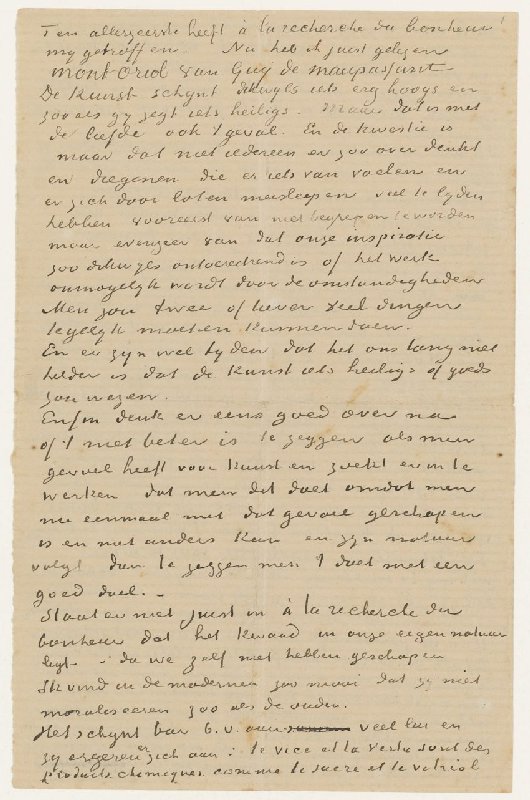 Ten allerzeerste heeft à la recherche du bonheur
mij getroffen. Nu heb ik juist gelezen
Mont Oriol van Guy de Maupassant
De kunst schijnt dikwijls iets erg hoogs en
zoo als gij zegt iets heiligs. Maar dat is met
de liefde ook 't geval. En de kwestie is
maar dat niet iedereen er zoo over denkt
en diegenen die er iets van voelen en
er zich door laten meeslepen veel te lijden
hebben vooreerst van niet begrepen te worden
maar evenzeer van dat onze inspiratie
zoo dikwijls ontoereikend is of het werk
onmogelijk wordt door de omstandigheden
Men zou twee of liever veel dingen
tegelijk moeten kunnen doen.
En er zijn wel tijden dat het ons lang niet
helder is dat de kunst iets heiligs of goeds
zou wezen.
Enfin denk er eens goed over na
of 't niet beter is te zeggen als men
gevoel heeft voor kunst en zoekt er in te
werken dat men dit doet omdat men
nu eenmaal met dat gevoel geschapen
is en niet anders kan en zijn natuur
volgt dan te zeggen men 't doet met een
goed doel. –
Staat er niet juist in à la recherche du
bonheur dat het kwaad in onze eigen natuur
ligt – die we zelf niet hebben geschapen
Ik vind in de modernen zoo mooi dat zij niet
moraliseeren zoo als de ouden.
Het schijnt bar b.v. aan veel lui en
zij ergeren er zich aan: le vice et la vertu sont des
produits chimiques comme le sucre et le vitriol